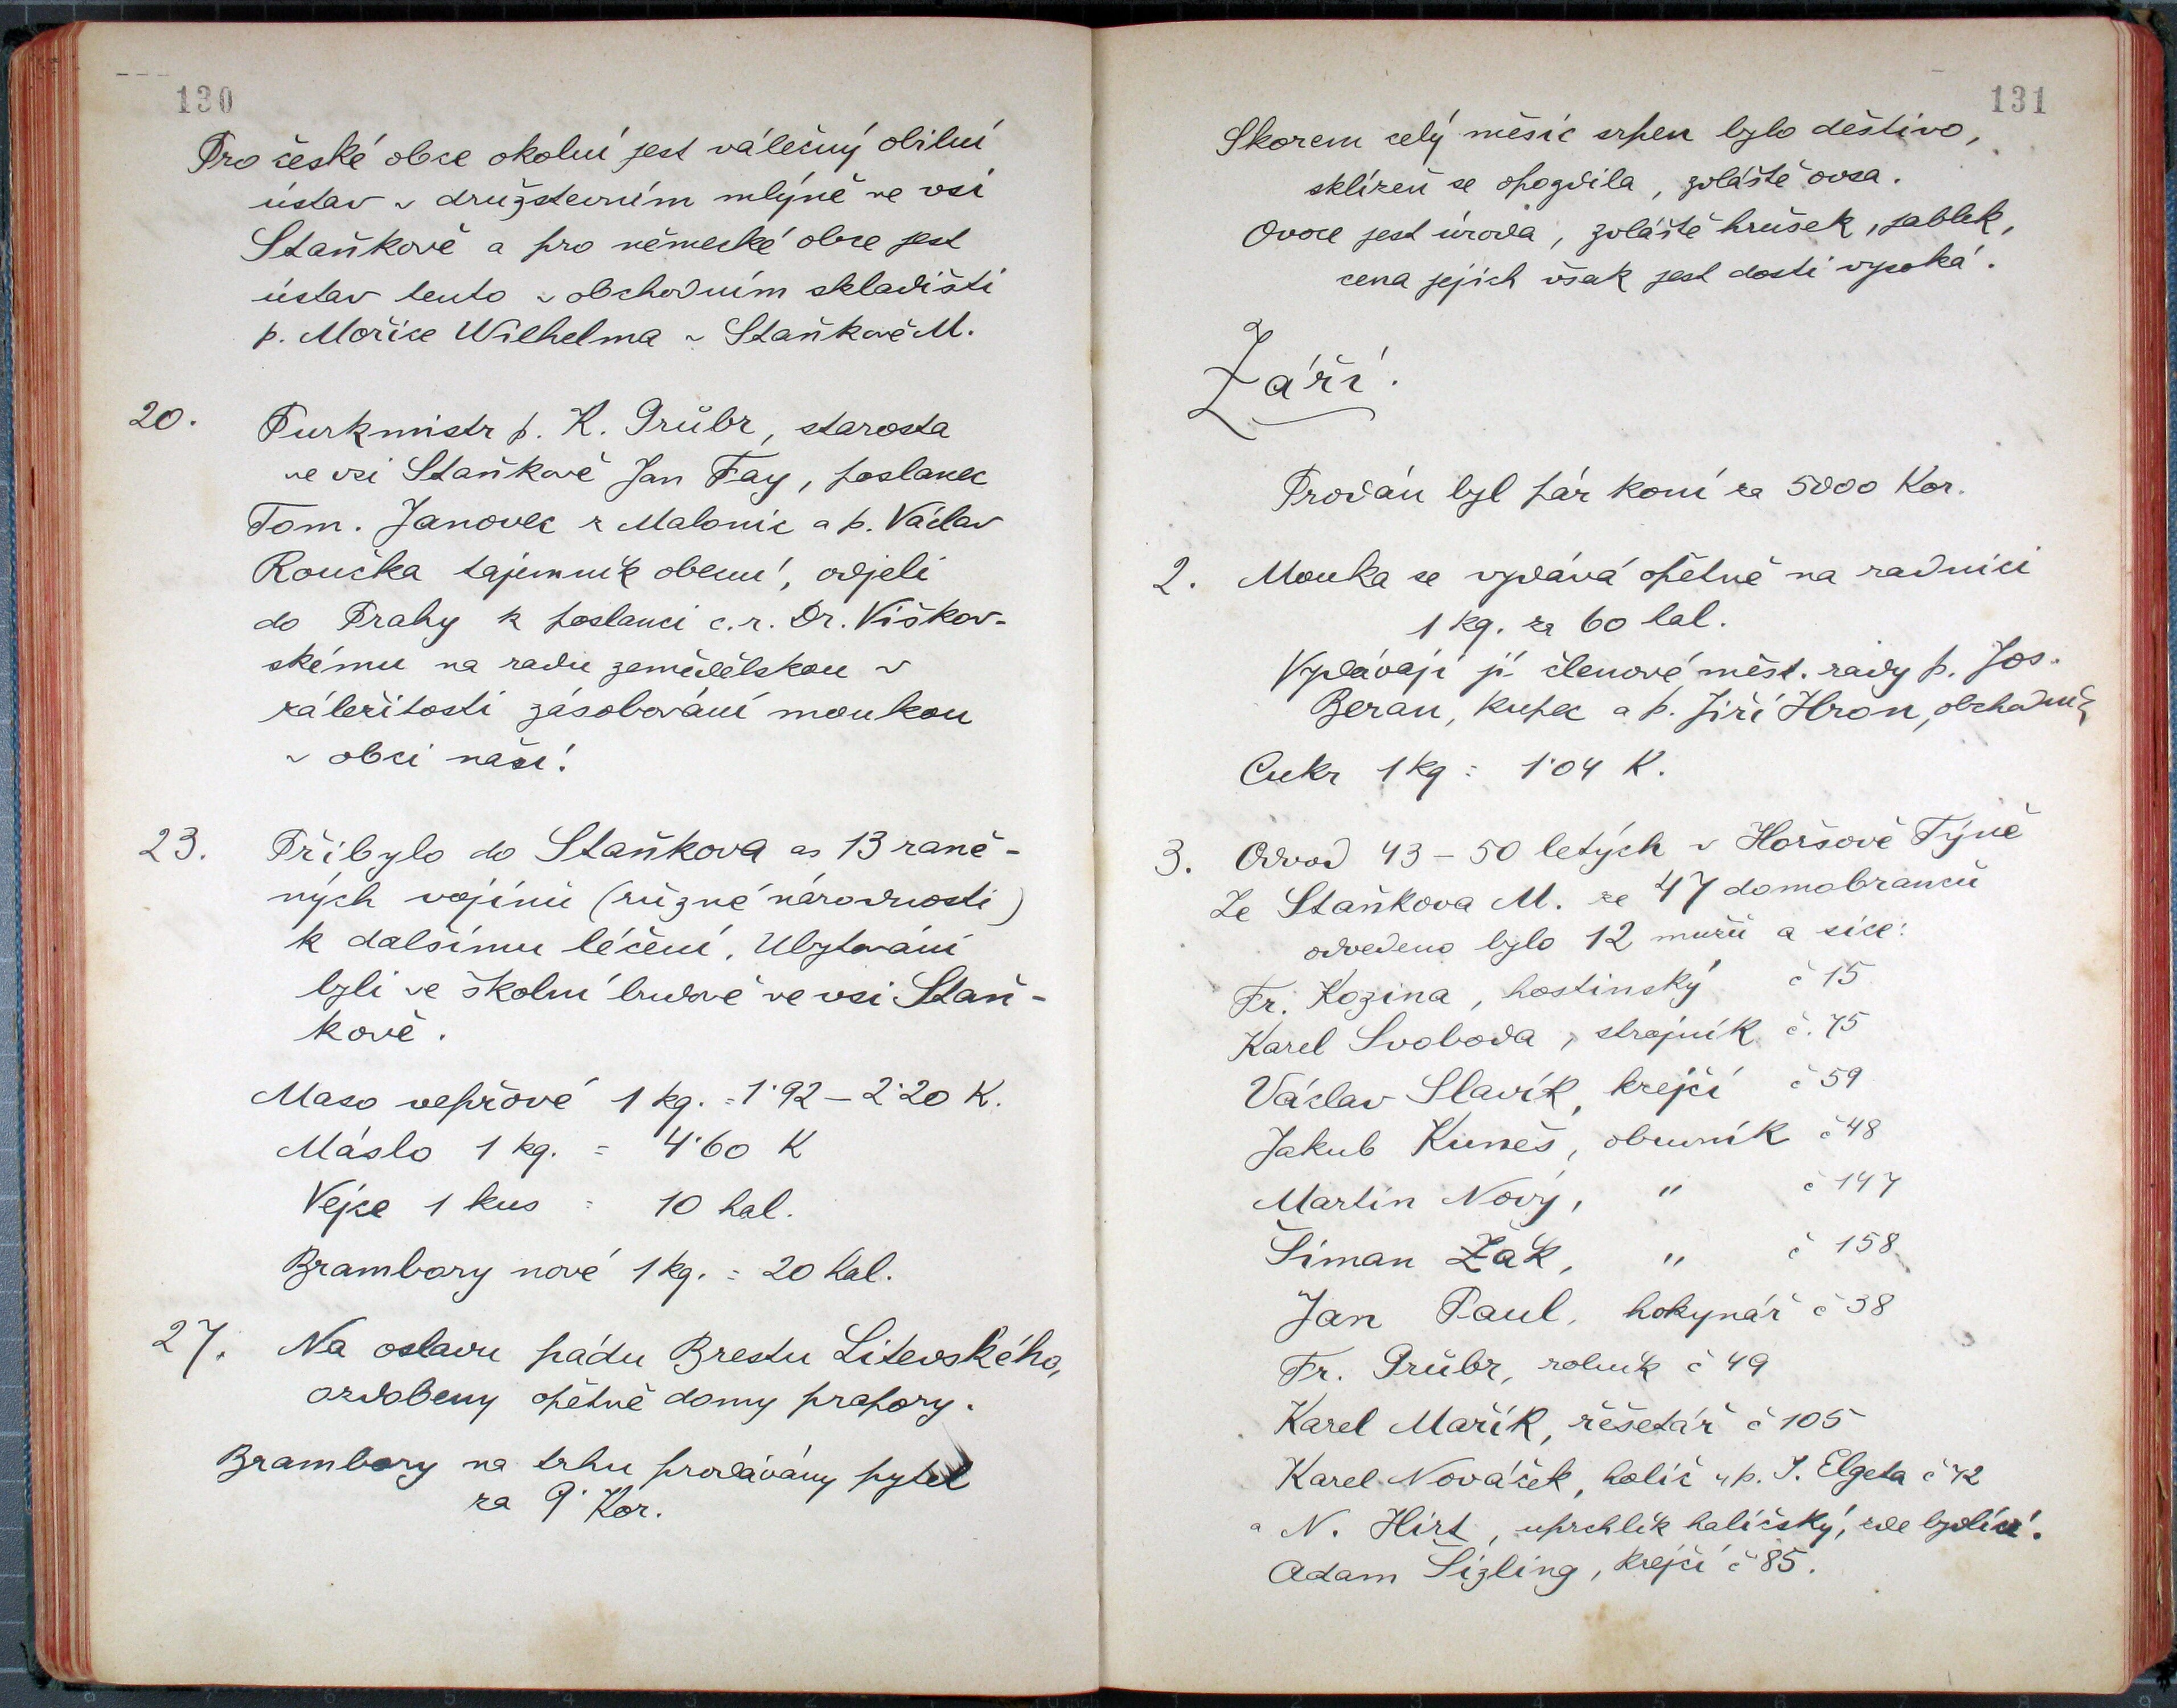 130
Pro české obce okolní jest válečný obilní
ústav v družstevním mlýně ve vsi
Staňkově a pro německé obce jest
ústav tento v obchodním skladišti
p. Mořice Wilhelma v Staňkově M.
20. Purkmistr p. K. Grůbr, starosta
ve vsi Staňkově Jan Fay, poslanec
Tom. Janovec z Malonic a p. Václav
Roučka tajemník obecní, odjeli
do Prahy k poslanci ř. r. Dr. Viškov-
skému na radu zemědělskou v
záležitosti zásobování moukou
v obci naší.
23. Přibylo do Staňkova as 13 raně-
ných vojínů (různé národnosti)
k dalšímu léčení. Ubytováni
byli ve školní budově ve vsi Staň-
kově.
Maso vepřové 1 kg. = 1·92 – 2·20 K.
Máslo 1 kg. = 4·60 K
Vejce 1 kus = 10 hal.
Brambory nové 1 kg. = 20 hal.
27. Na oslavu pádu Brestu Litevského,
ozdobeny opětně domy prapory.
Brambory na trhu prodávány pytel
za 9· Kor.
131
Skorem celý měsíc srpen bylo deštivo,
sklizeň se opozdila, zvláště ovsa.
Ovoce jest úroda, zvláště hrušek, jablek,
cena jejich však jest dosti vysoká.
Září.
Prodán byl pár koní za 5000 Kor.
2. Mouka se vydává opětně na radnici
1 kg. za 60 hal.
Vydávají ji členové měst. rady p. Jos.
Beran, kupec a p. Jiří Hron, obchodník
Cukr 1 kg = 1·04 K.
3. Odvod 43 – 50 letých v Horšově Týně
Ze Staňkova M. ze 47 domobranců
odvedeno bylo 12 mužů a sice:
Fr. Kozina, hostinský č 15
Karel Svoboda, strojník č. 75
Václav Slavík, krejčí č 59
Jakub Kuneš, obuvník č 48
Martin Nový, " č 147
Šiman Žák, " č 158
Jan Paul, hokynář č 38
Fr. Grůbr, rolník č 49
Karel Mařík, řešetář č 105
Karel Nováček, holič u p. J. Elgeta č 42
a N. Hirt, uprchlík haličský, zde bydlící.
Adam Šizling, krejčí č 85.